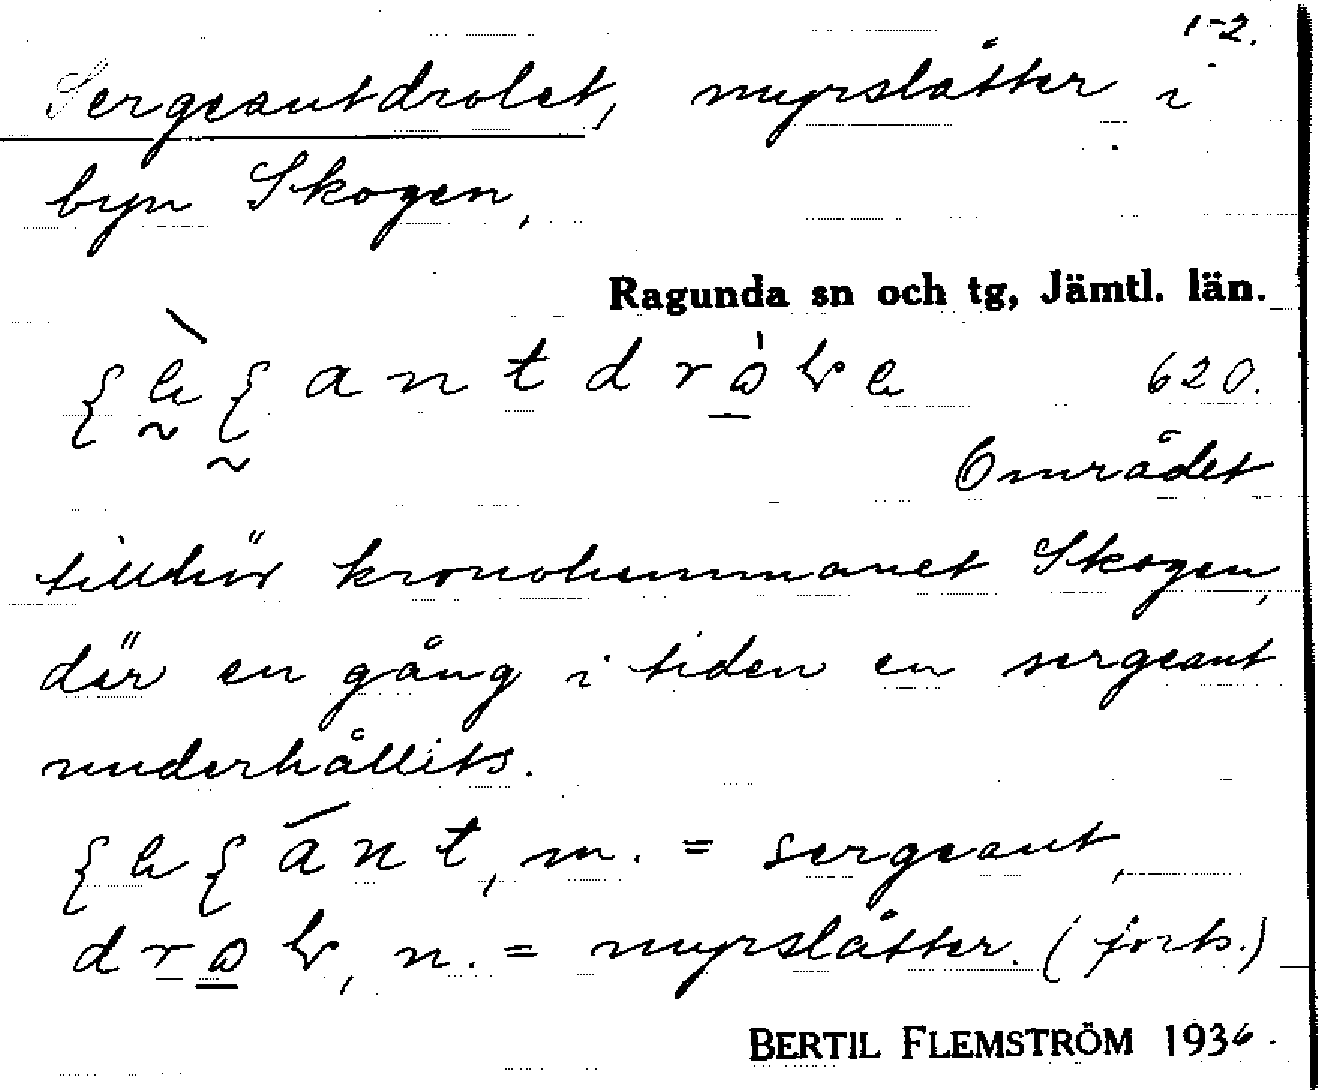 1-2.
Sergeantdrolet, myrslåtter i
byn Skogen,
Ragunda sn och tg, Jämtl. län.
620.
Området
tillhör kronohemmanet Skogen,
där en gång i tiden en sergeant
underhållits.
m. = sergeant,
n. = myrslåtter. (forts.)
BERTIL FLEMSTRÖM 1936.